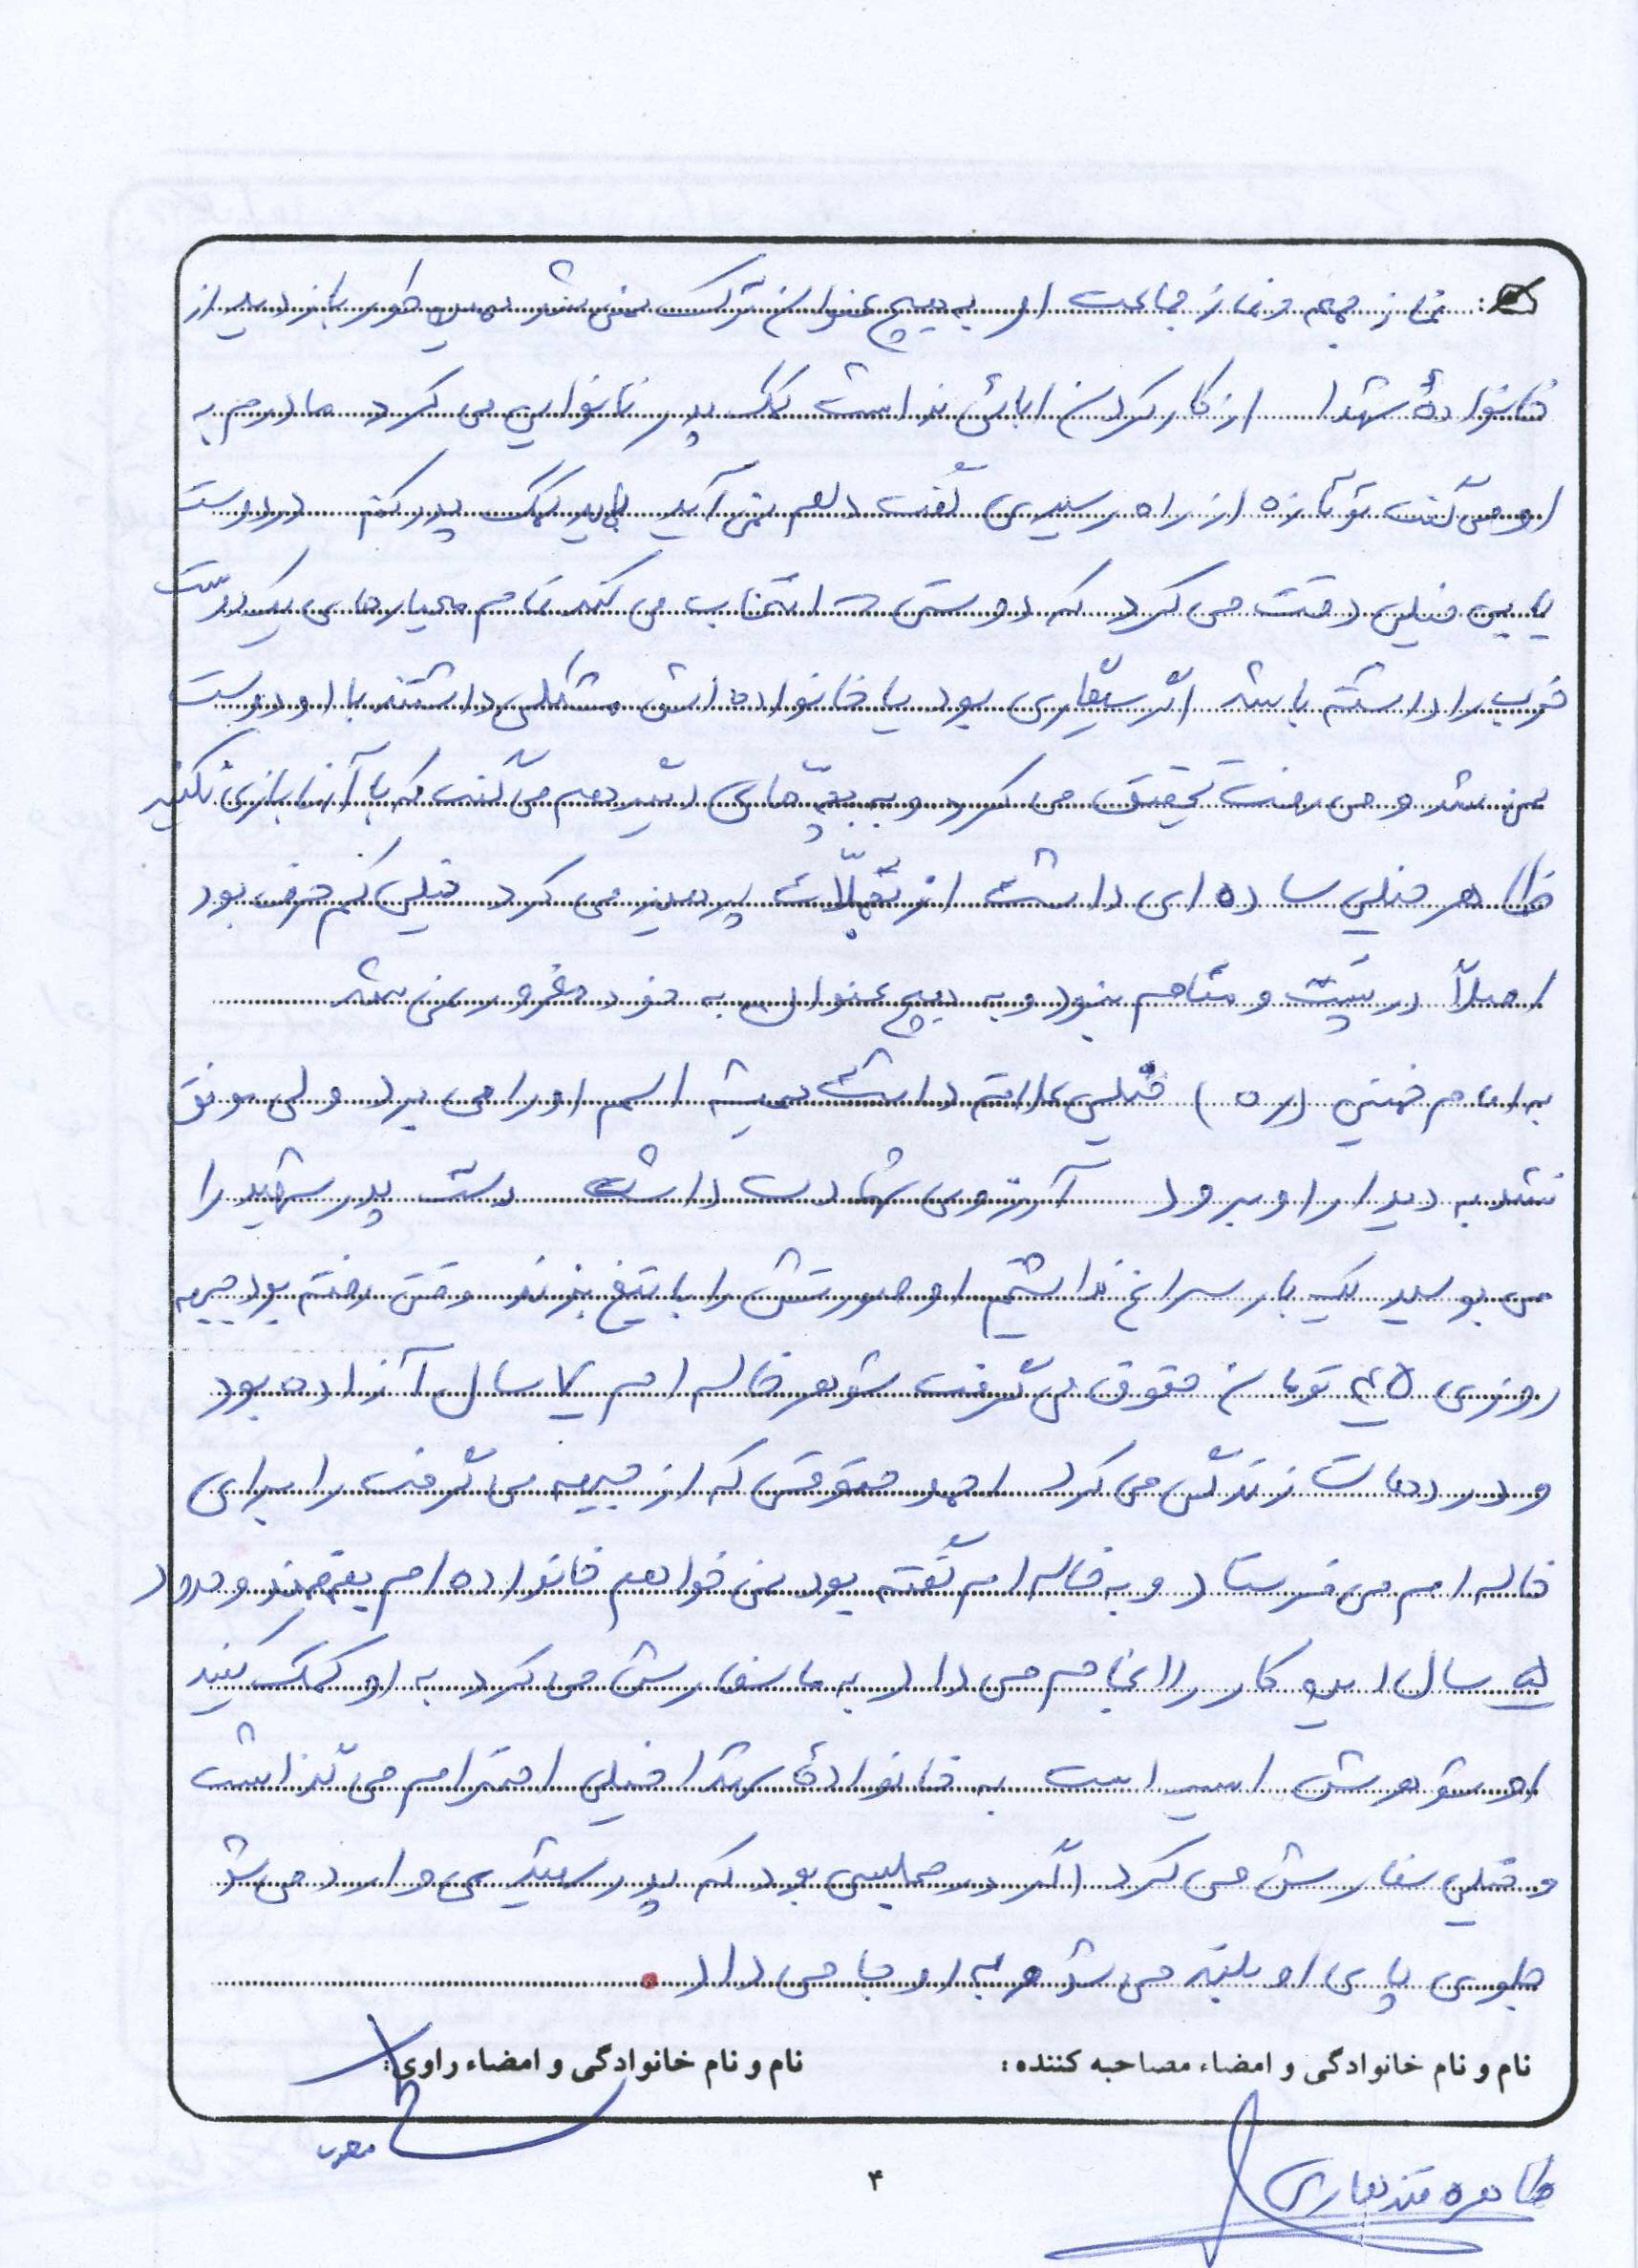 نماز جمعه و نماز جماعت او به هیچ عنوان ترک نمی شد همین طور بازدید از
خانوادهٔ شهدا از کار کردن ابائی نداشت کمک پدر نانوایی می کرد مادرم به
او می گفت تو تازه از راه رسیدی گفت دلم نمی آید باید کمک پدر کنم در دوست
یابی خیلی دقت می کرد که دوستی انتخاب می کند تمام معیارهای یک دوست
خوب را داشته باشد اگر سیگاری بود یا خانواده اش مشکلی داشتند با او دوست
نمی شد و می رفت تحقیق می کرد و به بچّه های دیگر هم می گفت که با آنها بازی نکنید
ظاهر خیلی ساده ای داشت از تجملّات پرهیز می کرد خیلی کم حرف بود
اصلاً در پُست و مقام نبود و به هیچ عنوان به خود مغرور نمی شد
به امام خمینی (ره) خیلی علاقه داشت همیشه اسم او را می برد ولی موفق
نشد به دیدار او برود آرزوی شهادت داشت دست پدر شهید را
می بوسید یک بار سراغ نداشتیم او صورتش را با تیغ بزند وقتی رفته بود جبهه
روزی ۴۵ تومان حقوق می گرفت شوهر خاله ام ۷ سال آزاده بود
و در دهات زندگی می کرد احمد حقوقش که از جبهه می گرفت را برای
خاله ام می فرستاد و به خاله ام گفته بود نمی خواهم خانواده ام بفهمند و حدود
۵ سال این کار را انجام می داد به ما سفارش می کرد به او کمک کنید
او شوهرش اسیر است به خانوادهٔ شهدا خیلی احترام می گذاشت
و خیلی سفارش می کرد اگر در مجلسی بود که پدر شهیدی وارد می شد
جلوی پای او بلند می شد و به او جا می داد.
نام و نام خانوادگی و امضاء مصاحبه کننده: نام و نام خانوادگی و امضاء راوی:
طاهره قندهاری
۴